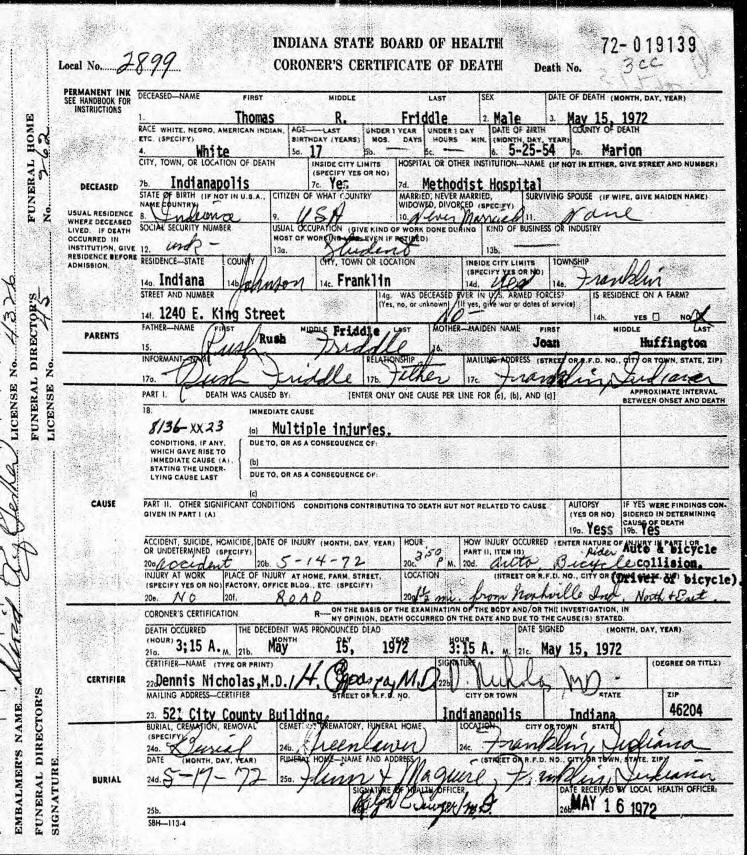 INDIANA STATE BOARD OF HEALTH
72-019139
Local No. 2899
CORONER'S CERTIFICATE OF DEATH
Death No.
3cc
PERMANENT INK
SEE HANDBOOK FOR
INSTRUCTIONS
DECEASED—NAME FIRST MIDDLE LAST
SEX
DATE OF DEATH (MONTH, DAY, YEAR)
1. Thomas R. Friddle
2. Male
3. May 15, 1972
RACE WHITE, NEGRO, AMERICAN INDIAN,
ETC. (SPECIFY)
AGE—LAST
BIRTHDAY (YEARS)
UNDER 1 YEAR
MOS. DAYS
UNDER 1 DAY
HOURS MIN.
DATE OF BIRTH
(MONTH, DAY, YEAR)
COUNTY OF DEATH
4. White
5a. 17
5b. —
5c. —
6. 5-25-54
7a. Marion
CITY, TOWN, OR LOCATION OF DEATH
INSIDE CITY LIMITS
(SPECIFY YES OR NO)
HOSPITAL OR OTHER INSTITUTION—NAME (IF NOT IN EITHER, GIVE STREET AND NUMBER)
7b. Indianapolis
7c. Yes
7d. Methodist Hospital
DECEASED
STATE OF BIRTH (IF NOT IN U.S.A.,
NAME COUNTRY)
CITIZEN OF WHAT COUNTRY
MARRIED, NEVER MARRIED,
WIDOWED, DIVORCED (SPECIFY)
SURVIVING SPOUSE (IF WIFE, GIVE MAIDEN NAME)
8. Indiana
9. USA
10. Never Married
11. None
USUAL RESIDENCE
WHERE DECEASED
LIVED. IF DEATH
OCCURRED IN
INSTITUTION, GIVE
RESIDENCE BEFORE
ADMISSION.
SOCIAL SECURITY NUMBER
USUAL OCCUPATION (GIVE KIND OF WORK DONE DURING
MOST OF WORKING LIFE, EVEN IF RETIRED)
KIND OF BUSINESS OR INDUSTRY
12. unk-
13a. Student
13b.
RESIDENCE—STATE
COUNTY
CITY, TOWN OR LOCATION
INSIDE CITY LIMITS
(SPECIFY YES OR NO)
TOWNSHIP
14a. Indiana
14b. Johnson
14c. Franklin
14d. Yes
14e. Franklin
STREET AND NUMBER
14g. WAS DECEASED EVER IN U.S. ARMED FORCES?
(Yes, no, or unknown) (If yes, give war or dates of service)
IS RESIDENCE ON A FARM?
14f. 1240 E. King Street
No
14h. YES NO X
PARENTS
FATHER—NAME FIRST MIDDLE LAST
MOTHER—MAIDEN NAME FIRST MIDDLE LAST
15. Rush Friddle
Rush Friddle
16. Joan Huffington
INFORMANT—NAME
RELATIONSHIP
MAILING ADDRESS (STREET OR R.F.D. NO., CITY OR TOWN, STATE, ZIP)
17a. Rush Friddle
17b. Father
17c. Franklin, Indiana
PART I. DEATH WAS CAUSED BY: [ENTER ONLY ONE CAUSE PER LINE FOR (a), (b), AND (c)]
APPROXIMATE INTERVAL
BETWEEN ONSET AND DEATH
18.
IMMEDIATE CAUSE
8136-XX23
(a) Multiple injuries.
CONDITIONS, IF ANY,
WHICH GAVE RISE TO
IMMEDIATE CAUSE (A),
STATING THE UNDER-
LYING CAUSE LAST
DUE TO, OR AS A CONSEQUENCE OF:
(b)
DUE TO, OR AS A CONSEQUENCE OF:
(c)
CAUSE
PART II. OTHER SIGNIFICANT CONDITIONS CONDITIONS CONTRIBUTING TO DEATH BUT NOT RELATED TO CAUSE
GIVEN IN PART I (A)
AUTOPSY
(YES OR NO)
19a. Yess
IF YES WERE FINDINGS CON-
SIDERED IN DETERMINING
CAUSE OF DEATH
19b. Yes
ACCIDENT, SUICIDE, HOMICIDE,
OR UNDETERMINED (SPECIFY)
DATE OF INJURY (MONTH, DAY, YEAR)
HOUR
HOW INJURY OCCURRED (ENTER NATURE OF INJURY IN PART I OR
PART II, ITEM 18)
20a. accident
20b. 5-14-72
20c. 3:50 P M.
20d. auto Bicycle Rider Auto & bicycle
collision.
(Driver of bicycle).
INJURY AT WORK
(SPECIFY YES OR NO)
PLACE OF INJURY AT HOME, FARM, STREET,
FACTORY, OFFICE BLDG., ETC. (SPECIFY)
LOCATION (STREET OR R.F.D. NO., CITY OR
20e. NO
20f. ROAD
mi. from Nashville Ind. North & East.
CORONER'S CERTIFICATION
R—ON THE BASIS OF THE EXAMINATION OF THE BODY AND/OR THE INVESTIGATION, IN
MY OPINION, DEATH OCCURRED ON THE DATE AND DUE TO THE CAUSE(S) STATED.
DEATH OCCURRED
(HOUR)
THE DECEDENT WAS PRONOUNCED DEAD
MONTH DAY, YEAR HOUR
DATE SIGNED (MONTH, DAY, YEAR)
21a. 3:15 A. M.
21b. May 15, 1972 3:15 A. M.
21c. May 15, 1972
CERTIFIER
CERTIFIER—NAME (TYPE OR PRINT)
SIGNATURE
(DEGREE OR TITLE)
22a. Dennis Nicholas, M.D./
22b. D. Nicholas MD
MAILING ADDRESS—CERTIFIER STREET OR R.F.D. NO. CITY OR TOWN STATE ZIP
23. 521 City County Building, Indianapolis Indiana 46204
BURIAL, CREMATION, REMOVAL
(SPECIFY)
CEMETERY, CREMATORY, FUNERAL HOME
LOCATION CITY OR TOWN STATE
24a. Burial
24b. Greenlawn
24c. Franklin, Indiana
BURIAL
DATE (MONTH, DAY, YEAR)
FUNERAL HOME—NAME AND ADDRESS (STREET OR R.F.D. NO., CITY OR TOWN, STATE, ZIP)
24d. 5-17-72
25a. Flinn & Maguire, Franklin, Indiana
SIGNATURE OF HEALTH OFFICER
DATE RECEIVED BY LOCAL HEALTH OFFICER
25b.
26b. MAY 16 1972
SBH—113-4
EMBALMER'S NAME LICENSE No. 4326
FUNERAL DIRECTOR'S
SIGNATURE
FUNERAL DIRECTOR'S
LICENSE No. 45
FUNERAL HOME
No. 262